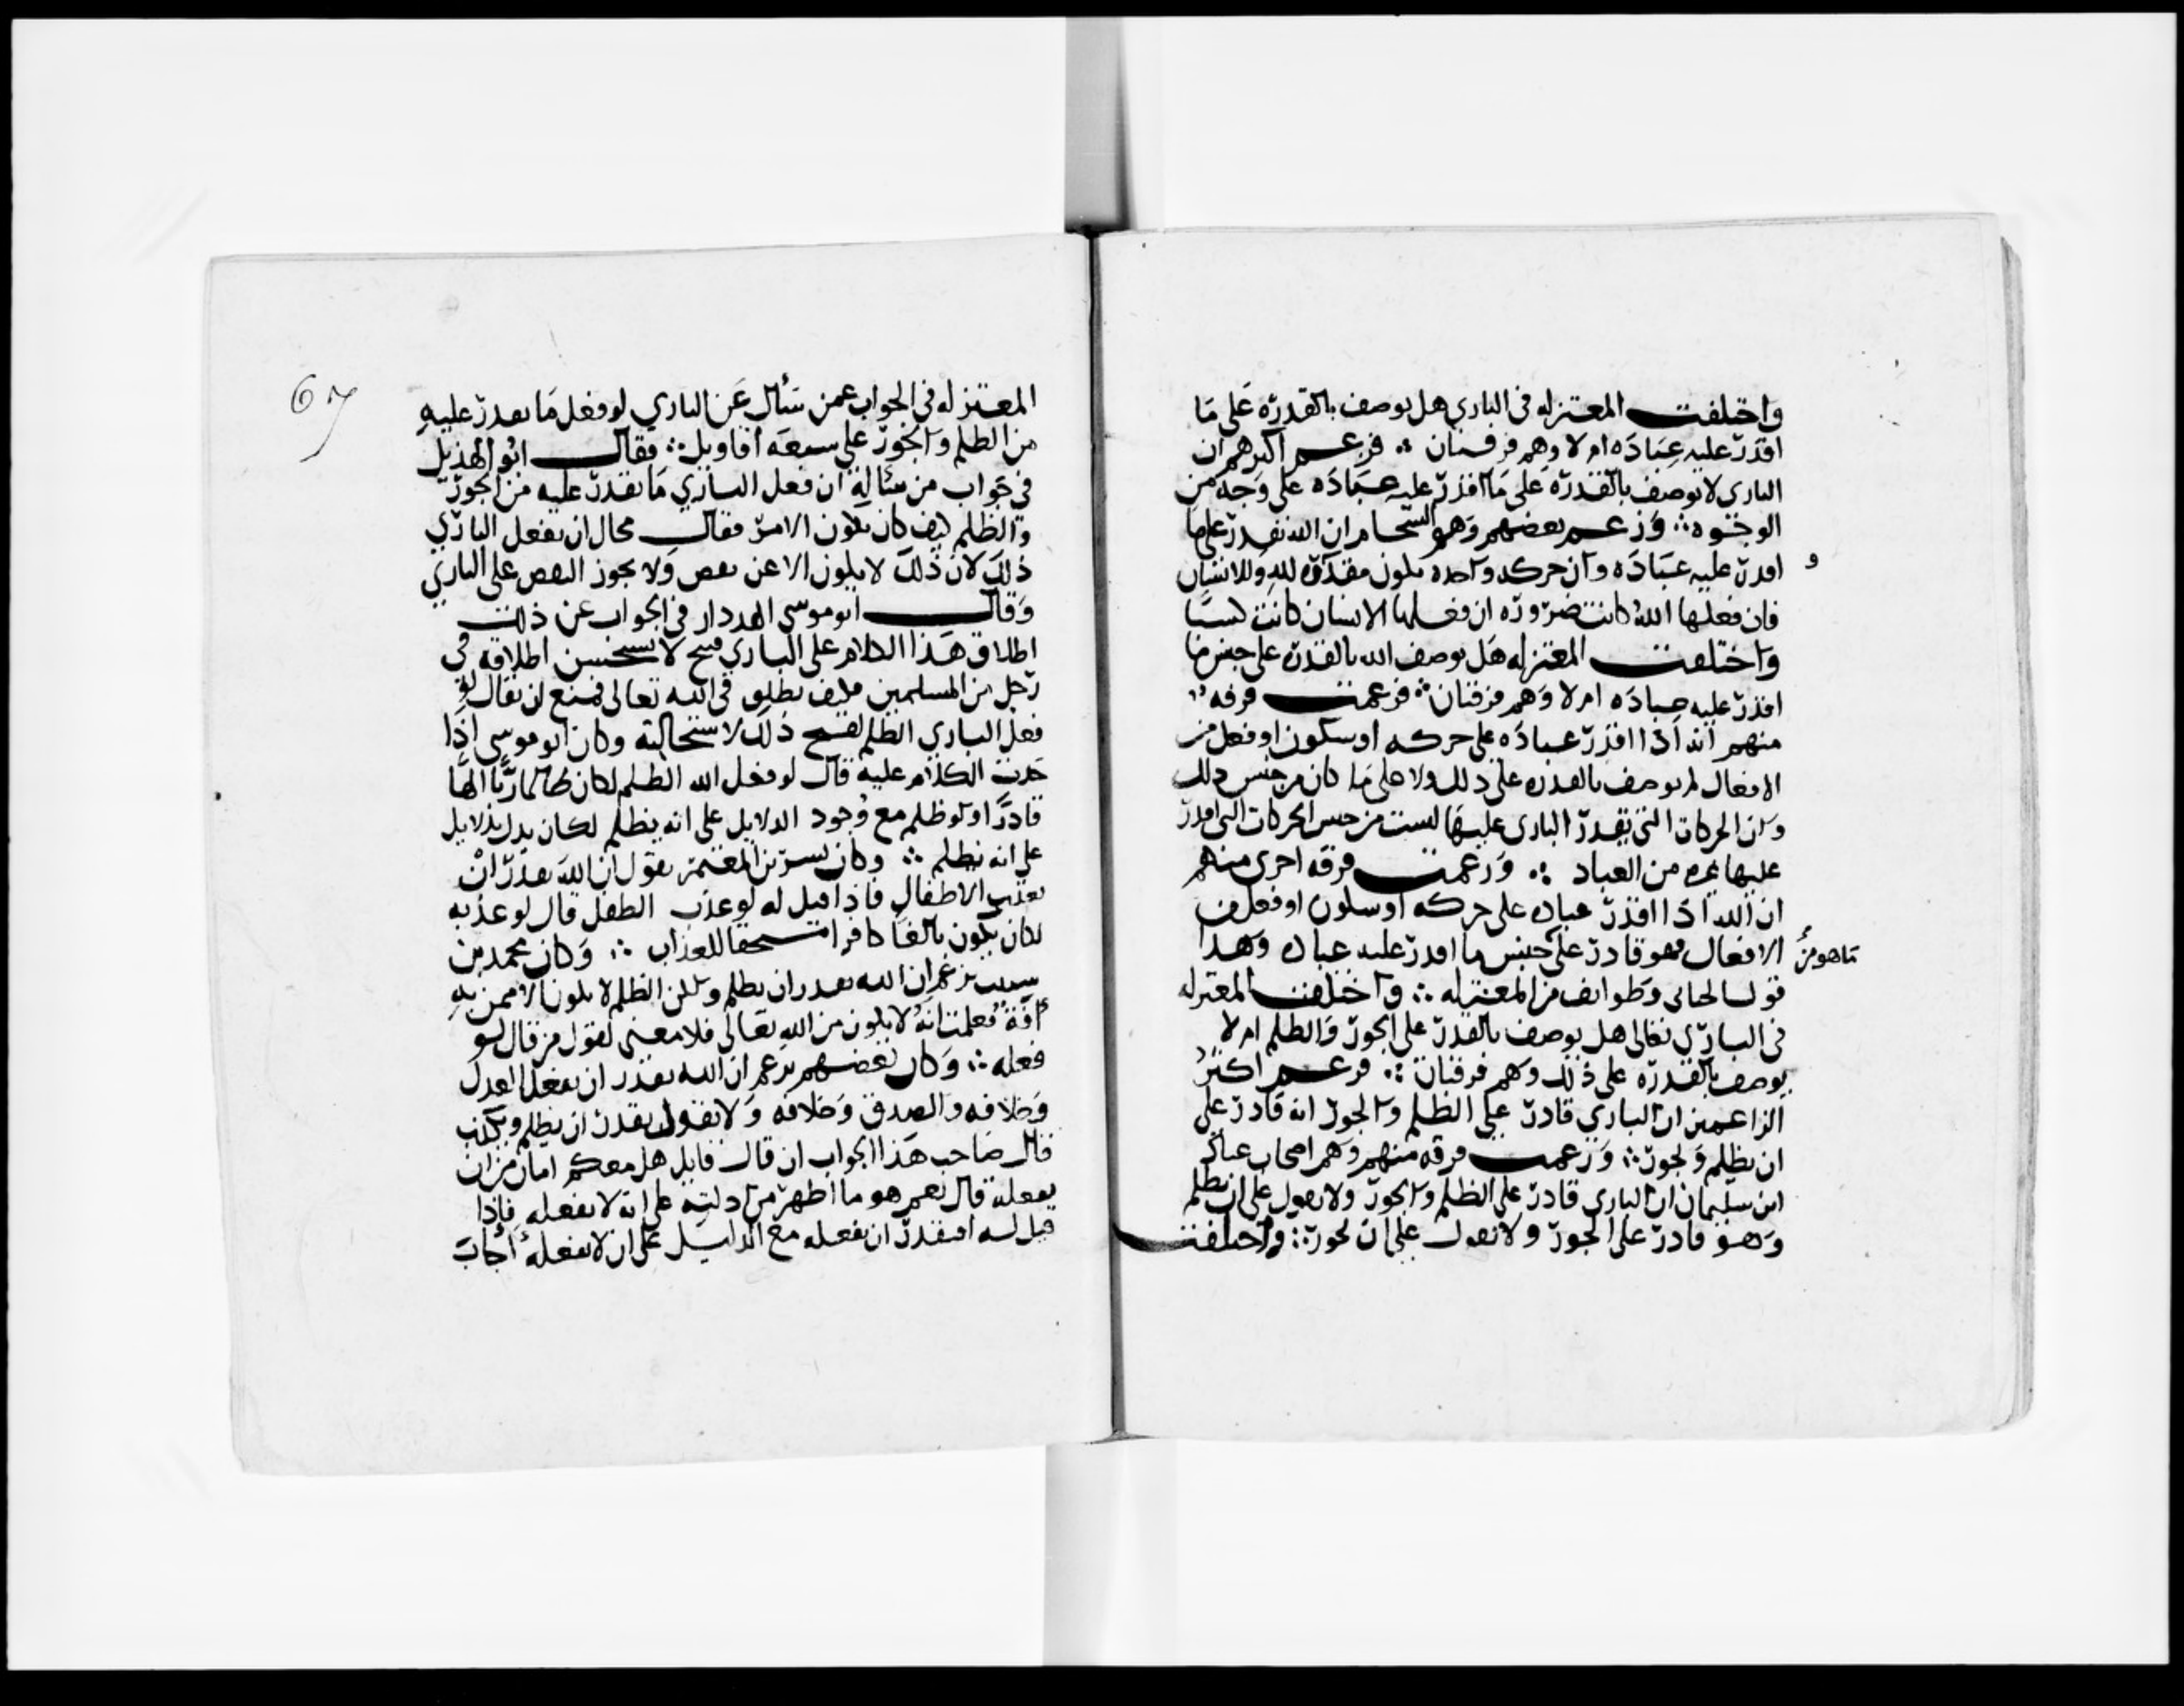 واختلفت المعتزله في الباري هل يوصف بالقدره على ما
اقدر عليه عباده ام لا وهم فرقتان ∴ فزعم اكثرهم ان
الباري لا يوصف بالقدره على ما اقدر عليه عباده على وجه من
الوجوه ∴ وزعم بعضهم وهو الشحام ان الله يقدر على ما
اقدر عليه عباده وان حركه واحده تكون مقدوره لله وللانسان
فان فعلها الله كانت ضروره ان فعلها الانسان كانت كسبا
واختلفت المعتزله هل يوصف الله بالقدره على جنس ما
اقدر عليه عباده ام لا وهم فرقتان ∴ فزعمت فرقه
منهم انه اذا اقدر عباده على حركه او سكون او فعل من
الافعال لم يوصف بالقدره على ذلك ولا على ما كان من جنس ذلك
وان الحركات التي يقدر الباري عليها ليست من جنس الحركات التي اقدر
عليها غيره من العباد ∴ وزعمت فرقه اخرى منهم
ان الله اذا اقدر عباده على حركه او سكون او فعل من
الافعال فهو قادر على جنس ما اقدر عليه عباده وهذا
ما هو من
قول الجبائي وطوائف من المعتزله ∴ واختلفت المعتزله
في الباري تعالى هل يوصف بالقدره على الجور والظلم ام لا
يوصف بالقدره على ذلك وهم فرقتان ∴ فزعم اكثر
الزاعمين ان الباري قادر على الظلم والجور انه قادر على
ان يظلم ويجور ∴ وزعمت فرقه منهم وهم اصحاب عباد
ابن سليمان ان الباري قادر على الظلم والجور ولا نقول على ان يظلم
وهو قادر على الجور ولا نقول على ان يجور ∴ واختلفت
67
المعتزله في الجواب عمن سأل عن الباري لو فعل ما يقدر عليه
من الظلم والجور على سبعه اقاويل ∴ فقال ابو الهذيل
في جواب من سئاله ان فعل الباري ما يقدر عليه من الجور
والظلم كيف كان يكون الامر فقال محال ان يفعل الباري
ذلك لان ذلك لا يكون الا عن نقص ولا يجوز النقص على الباري
وقال ابو موسى المردار في الجواب عن ذلك
اطلاق هذا الكلام على الباري قبيح لا يستحسن اطلاقه في
رجل من المسلمين فكيف يطلق في الله تعالى فمنع ان يقال لو
فعل الباري الظلم لقبح ذلك لا لاستحالته وكان ابو موسى اذا
جدد الكلام عليه قال لو فعل الله الظلم لكان ظالما ربا الها
قادرا ولو ظلم مع وجود الدلايل على انه يظلم لكان يدل بدلايل
على انه يظلم ∴ وكان بسر بن المعتمر يقول ان الله يقدر ان
يعذب الاطفال فاذا قيل له لو عذب الطفل قال لو عذبه
لكان يكون بالغا كافرا مستحقا للعذاب ∴ وكان محمد بن
شبيب يزعم ان الله يقدر ان يظلم ولكن الظلم لا يكون الا ممن به
آفة فعلمت انه لا يكون من الله تعالى فلا معنى لقول من قال لو
فعله ∴ وكان بعضهم يزعم ان الله يقدر ان يفعل العدل
وخلافه والصدق وخلافه ولا نقول يقدر ان يظلم ويكذب
قال صاحب هذا الجواب ان قال قايل هل معكم امان من ان
يفعله قال نعم هو ما اظهر من ادلته على انه لا يفعله فاذا
قيل له افيقدر ان يفعله مع الدليل على ان لا يفعله اجاب